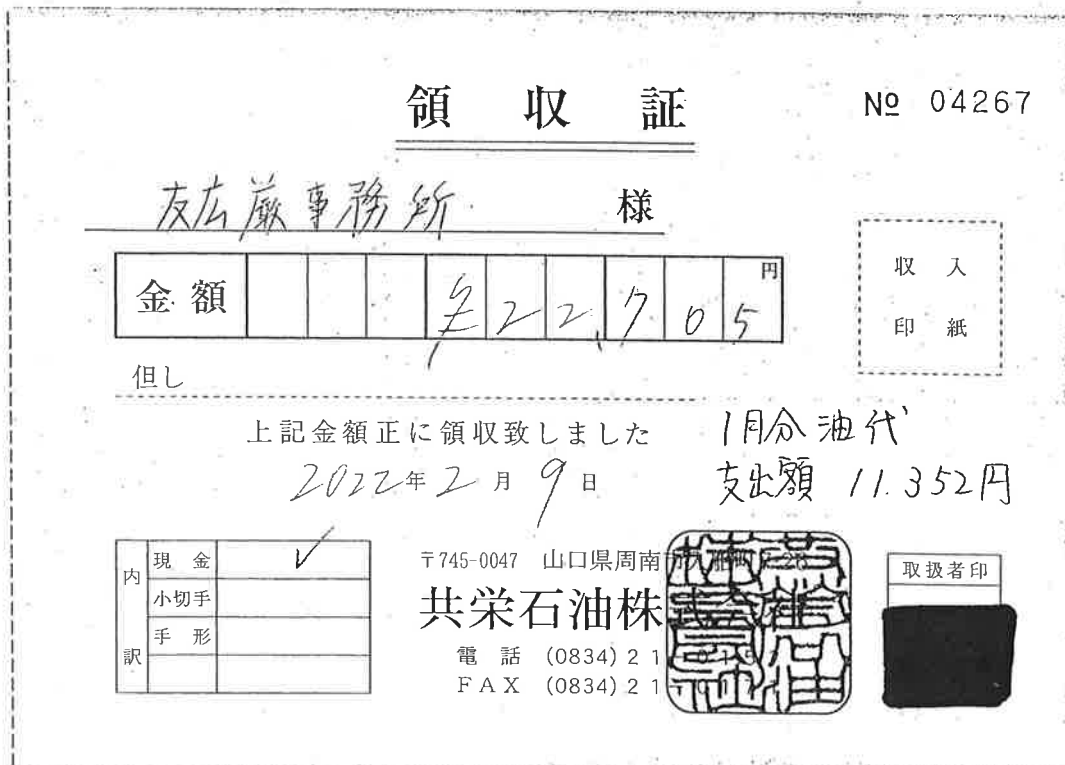 領収証
№ 04267
友広巌事務所 様
金額 ¥22,705円
収入
印紙
但し
上記金額正に領収致しました
2022年2月9日
1月分油代
支出額 11.352円
内訳
現金 ✓
小切手
手形
〒745-0047 山口県周南市
共栄石油株
電話 (0834)21
FAX (0834)21
取扱者印